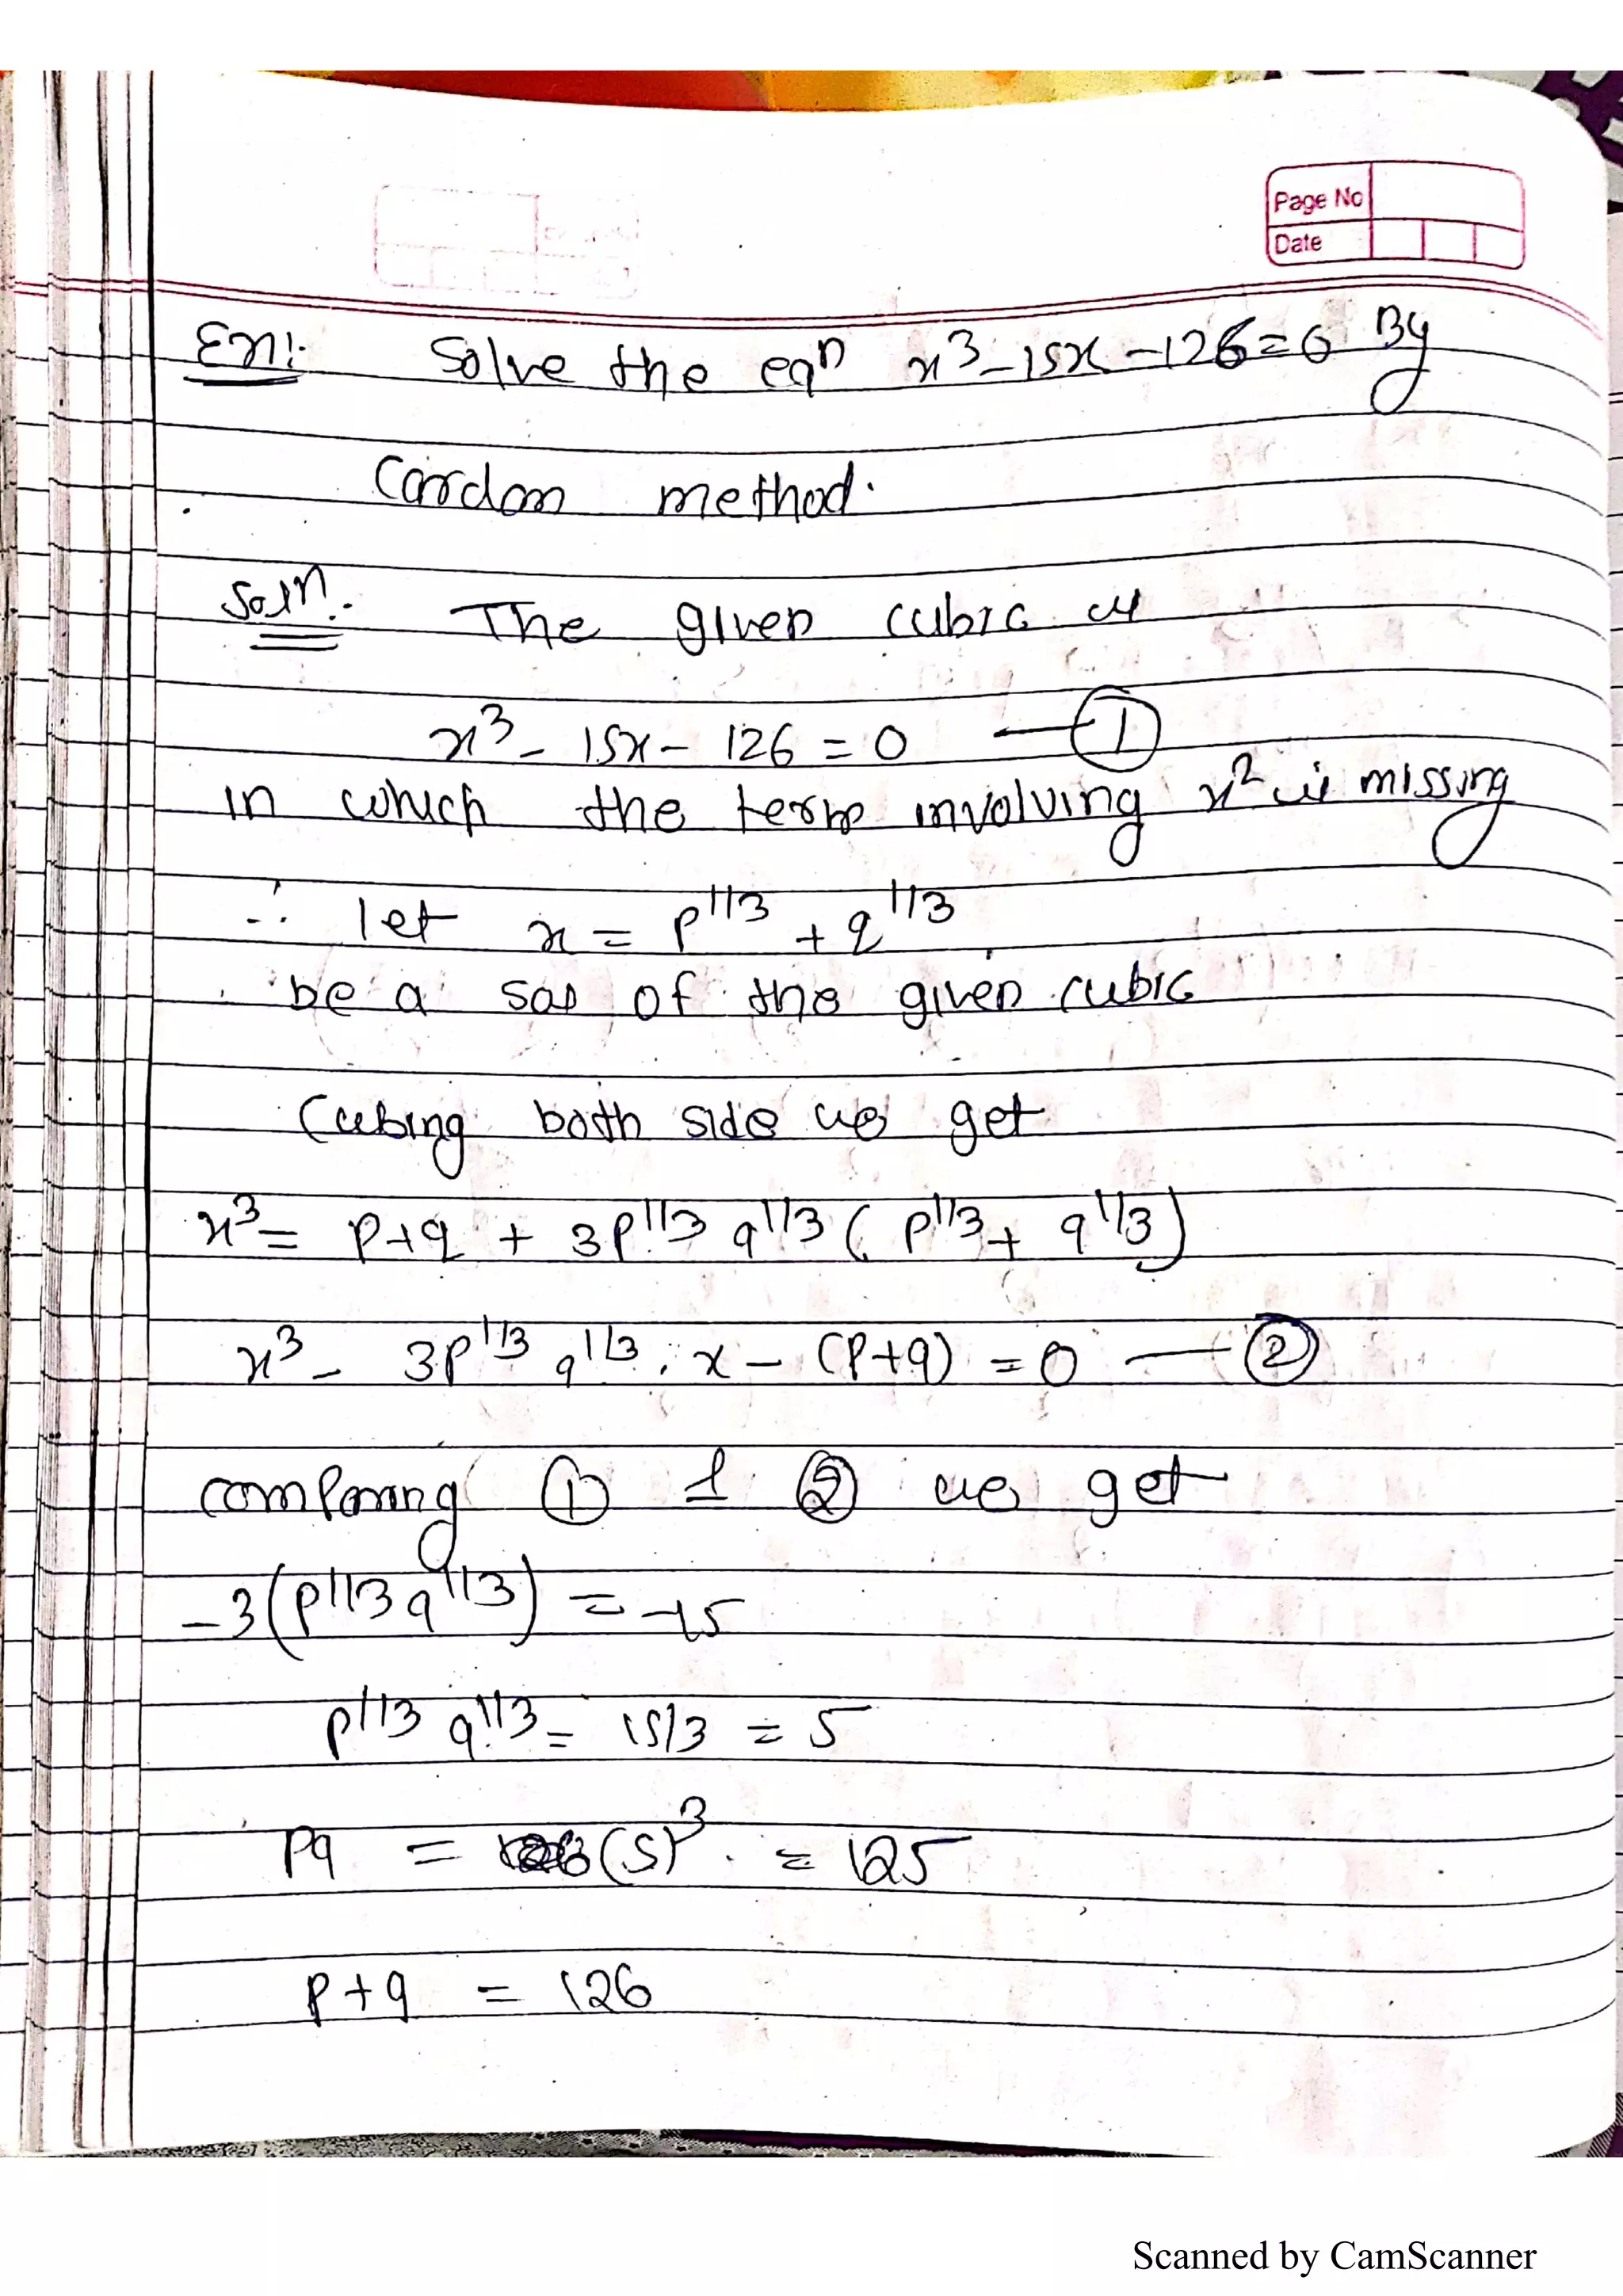 Page No
Date
Ex1:- Solve the eqn x³-15x-126=0 By
Cardon method.
Soln. The given cubic is
x³ - 15x - 126 = 0 — ①
in which the term involving x² is missing
∴ let x = p^1/3 + q^1/3
be a son of the given cubic
Cubing both side we get
x³ = p+q + 3p^1/3 q^1/3 (p^1/3 + q^1/3)
x³ - 3p^1/3 q^1/3 . x - (p+q) = 0 — ②
comparing ① & ② we get
-3(p^1/3 q^1/3) = -15
p^1/3 q^1/3 = 15/3 = 5
pq = (5)³ = 125
p+q = 126
Scanned by CamScanner